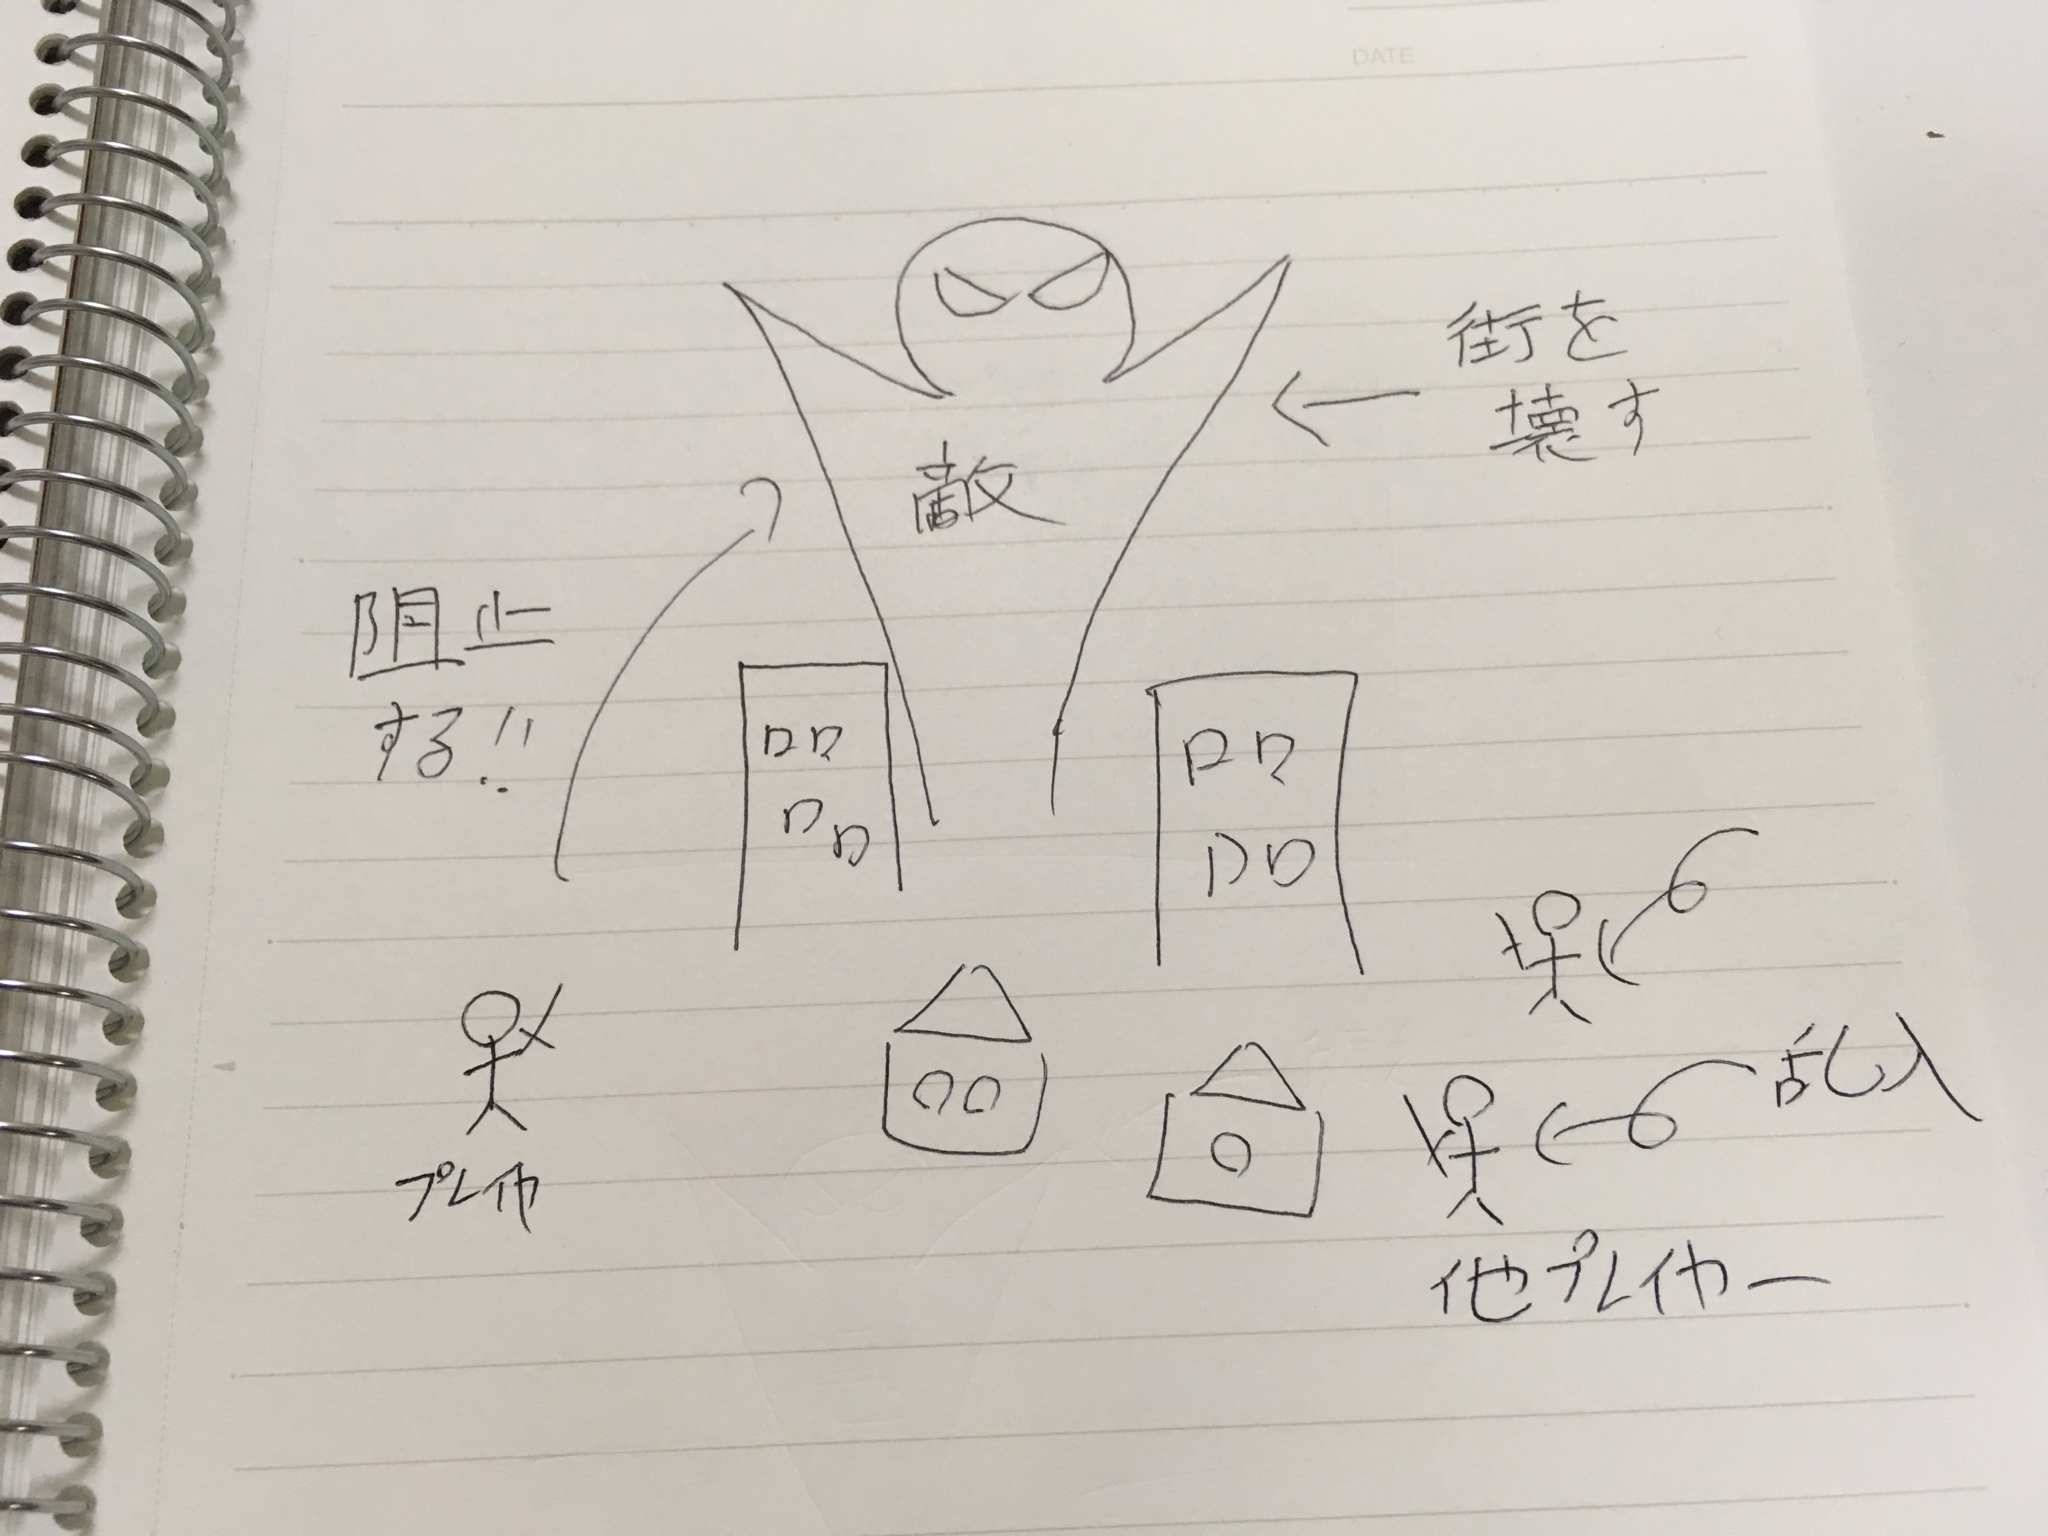 DATE
街を
壊す
敵
阻止
する!!
乱入
プレイヤ
他プレイヤー